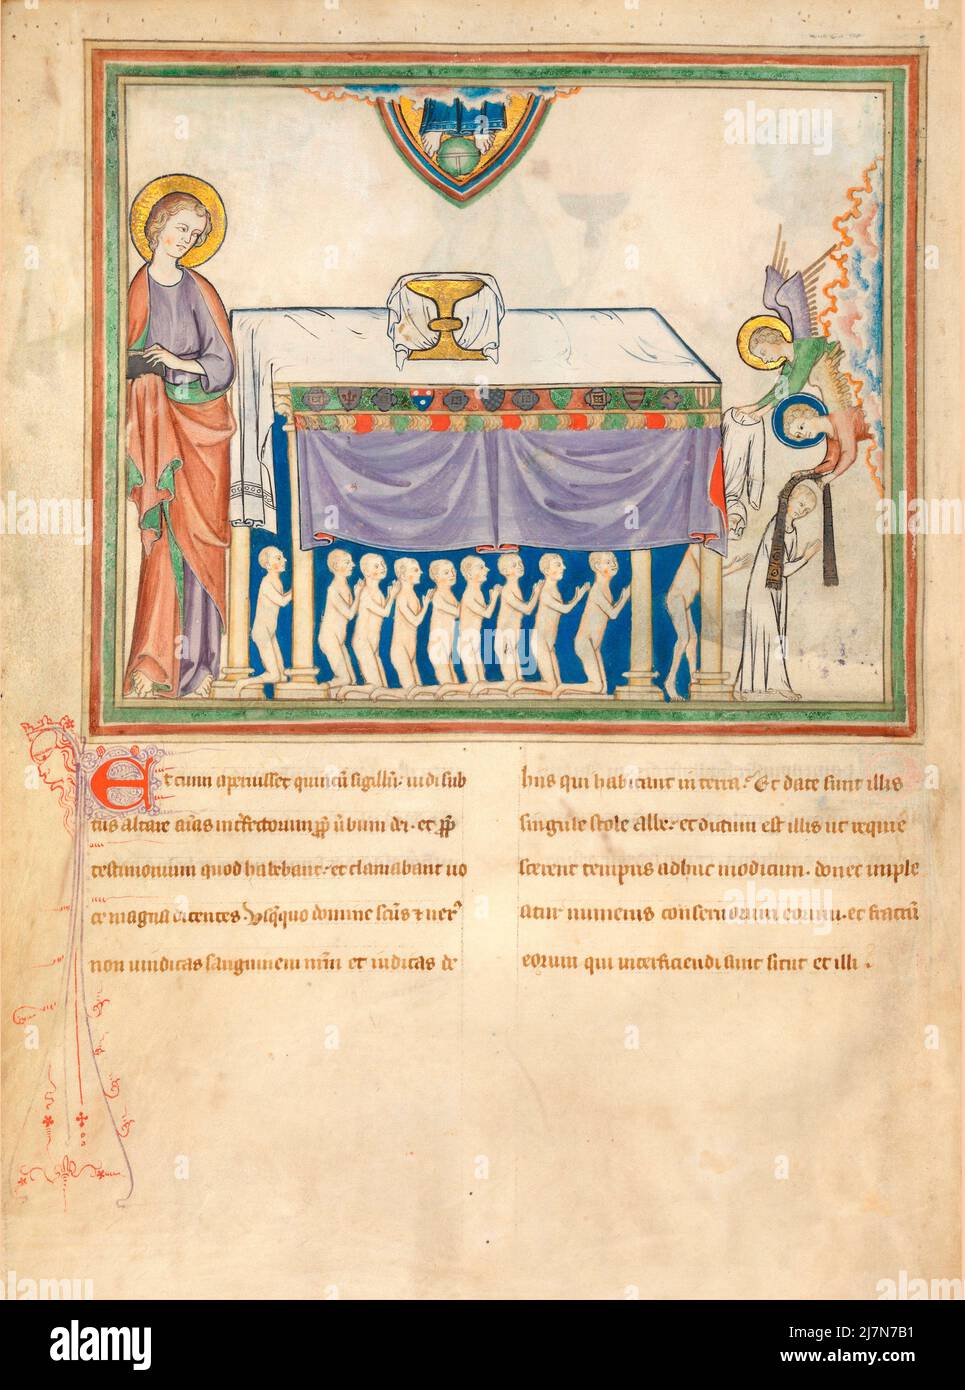 Et cum aperuisset quintũ sigillũ. uidi sub
tus altare aĩas int̃fectorum ꝓp̃ ũbum dei. et ꝓp̃
testimonium quod habebant. et clamabant uo
ce magna dicentes. Usq̃quo domine sc̃us ⁊ uerꝰ
non uindicas sanguinem nr̃m et iudicas de
hiis qui habitant in terra. Et date sunt illis
singule stole albe. et dictum est illis ut requie
scerent tempus adhuc modicum. donec imple
atur numerus conseruorum eorum. et fratrũ
eorum qui interficiendi sunt sicut et illi.
alamy
Image ID: 2J7N7B1
www.alamy.com